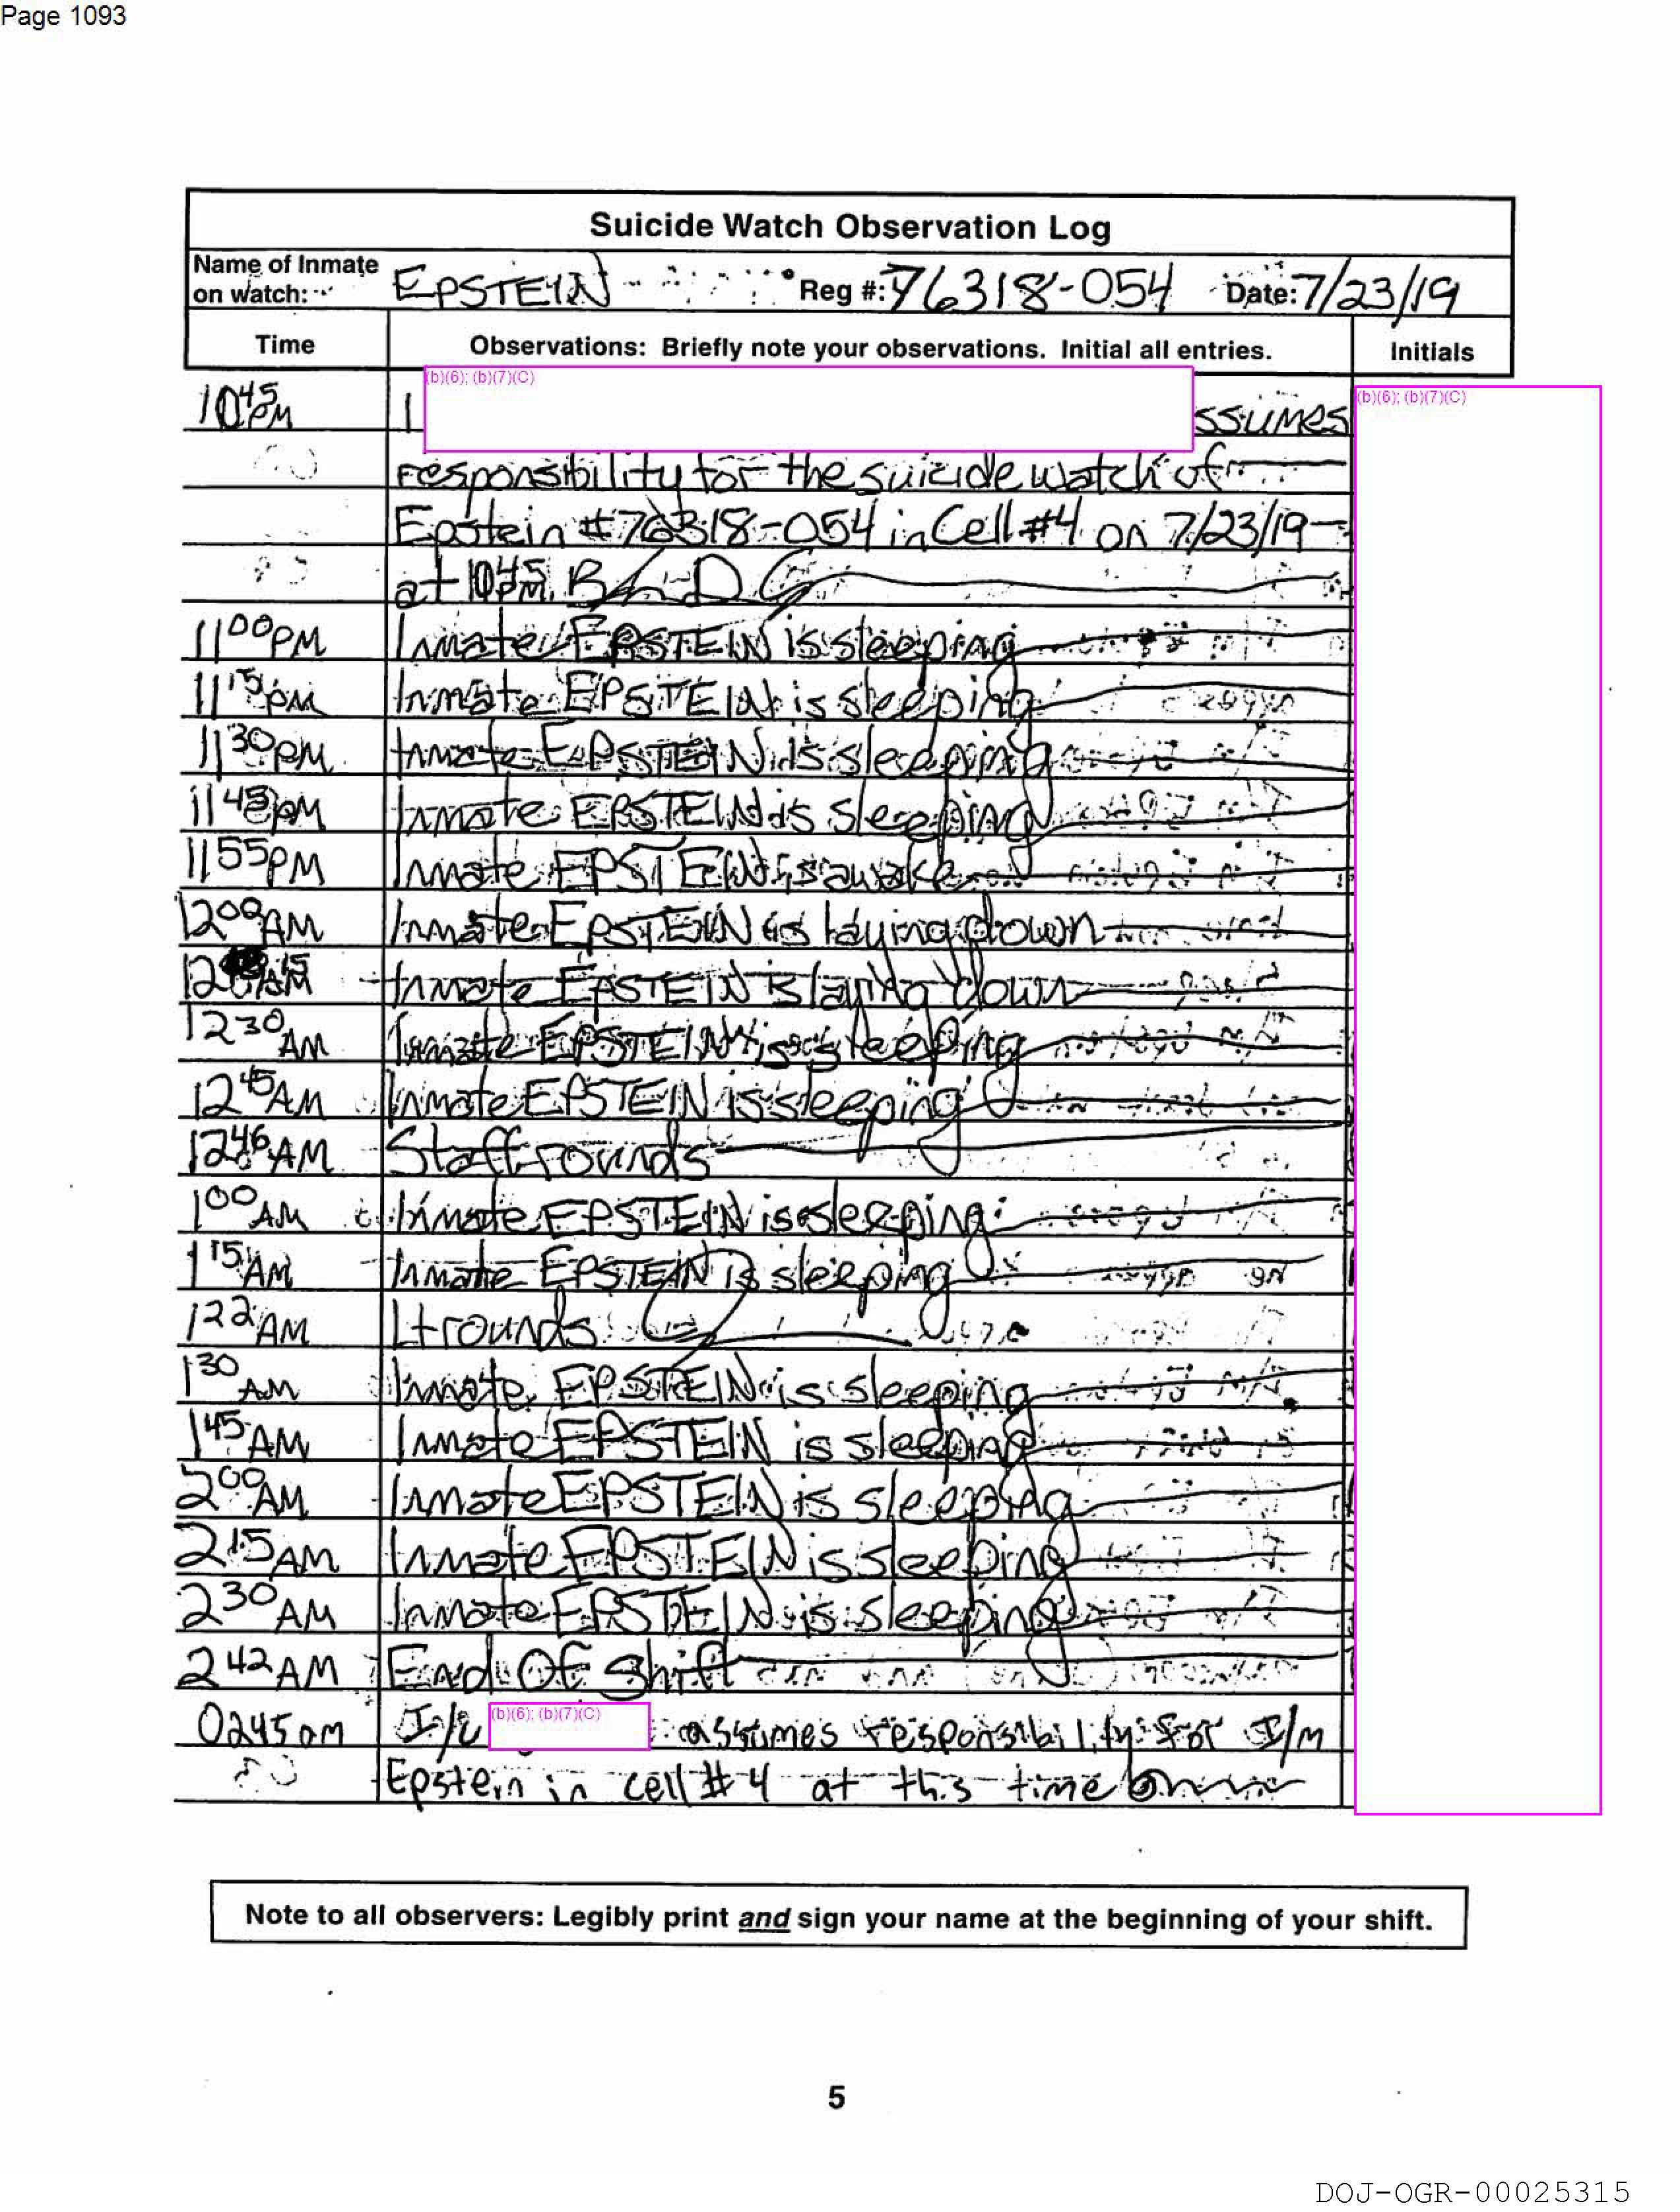 Page 1093
Suicide Watch Observation Log
Name of Inmate on watch: EPSTEIN Reg #: 76318-054 Date: 7/23/19
Time Observations: Briefly note your observations. Initial all entries. Initials
(b)(6); (b)(7)(C)
(b)(6); (b)(7)(C)
10 45 PM I ssumes
responsibility for the suicide watch of
Epstein #76318-054 in Cell #4 on 7/23/19
at 10 45 PM.
11 00 PM Inmate EPSTEIN is sleeping
11 15 PM Inmate EPSTEIN is sleeping
11 30 PM Inmate EPSTEIN is sleeping
11 45 PM Inmate EPSTEIN is sleeping
11 55 PM Inmate EPSTEIN is awake
12 00 AM Inmate EPSTEIN is laying down
12 15 AM Inmate EPSTEIN is laying down
12 30 AM Inmate EPSTEIN is sleeping
12 45 AM Inmate EPSTEIN is sleeping
12 46 AM Staff rounds
1 00 AM Inmate EPSTEIN is sleeping
1 15 AM Inmate EPSTEIN is sleeping
1 22 AM Lt rounds
1 30 AM Inmate EPSTEIN is sleeping
1 45 AM Inmate EPSTEIN is sleeping
2 00 AM Inmate EPSTEIN is sleeping
2 15 AM Inmate EPSTEIN is sleeping
2 30 AM Inmate EPSTEIN is sleeping
2 42 AM End Of Shift
0245 am I/C (b)(6); (b)(7)(C) assumes responsibility for I/m
Epstein in cell # 4 at this time
Note to all observers: Legibly print and sign your name at the beginning of your shift.
5
DOJ-OGR-00025315